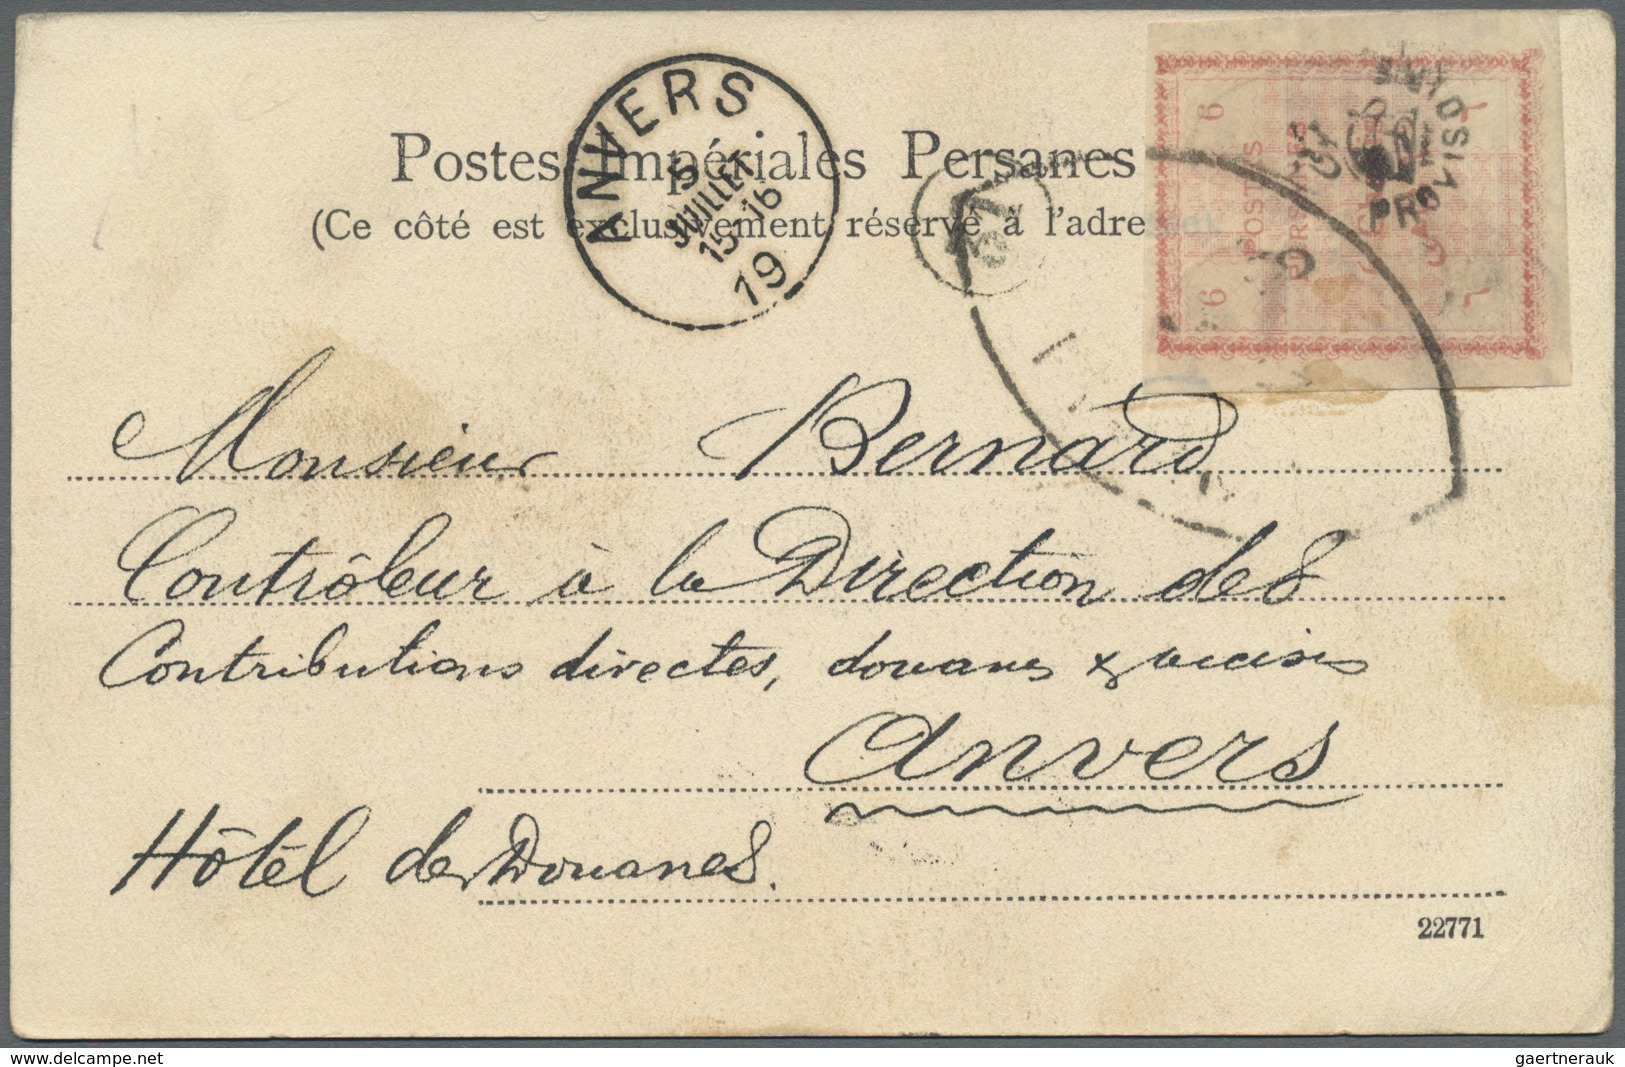 Postes Impériales Persanes
(Ce côté est exclusivement réservé à l'adre
ANVERS
5
JUILLET
15-16
19
37
6
POSTES
PROVISOIRE
6
Monsieur Bernard
Contrôleur à la Direction des
Contributions directes, douanes & accises
Anvers
Hôtel des Douanes.
22771
delcampe.net
gaertnerauk